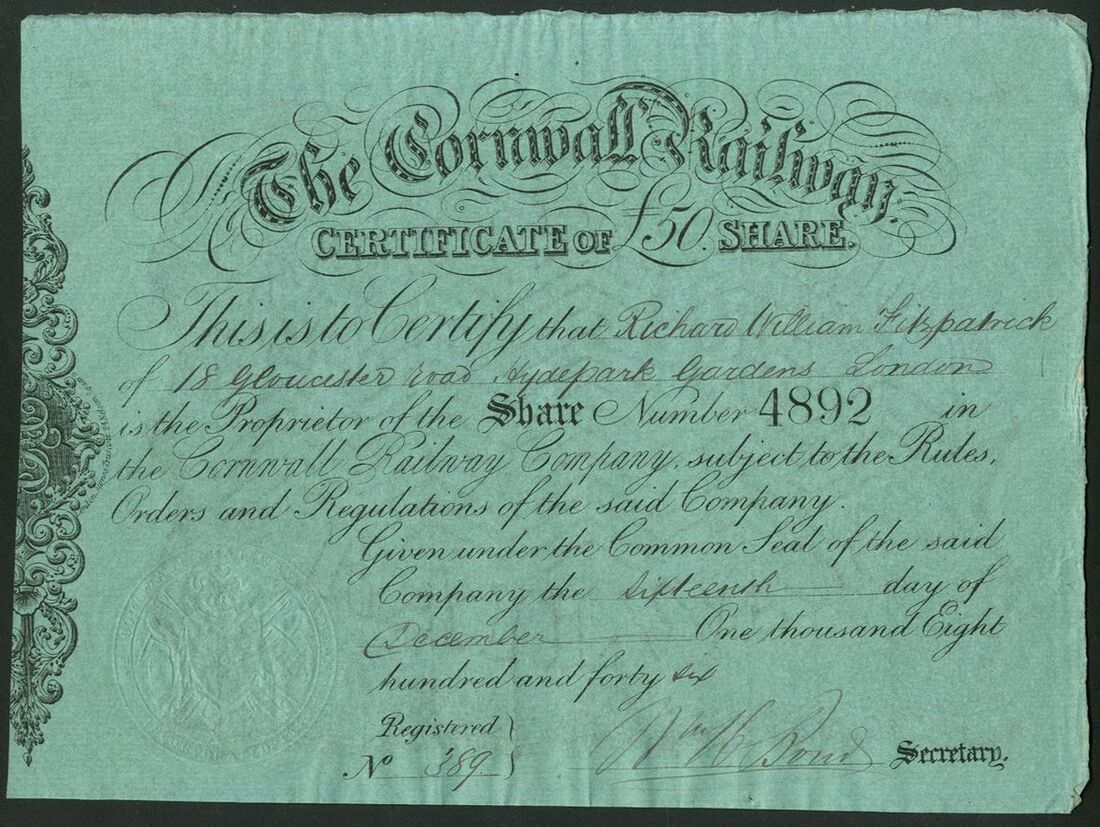 The Cornwall Railway.
CERTIFICATE OF £50. SHARE.
This is to Certify that Richard William Fitzpatrick
of 18 Gloucester Road Hydepark Gardens London
is the Proprietor of the Share Number 4892 in
the Cornwall Railway Company, subject to the Rules,
Orders and Regulations of the said Company.
Given under the Common Seal of the said
Company the Fifteenth day of
December One thousand Eight
hundred and forty six
Registered
No 389.
Bond Secretary.